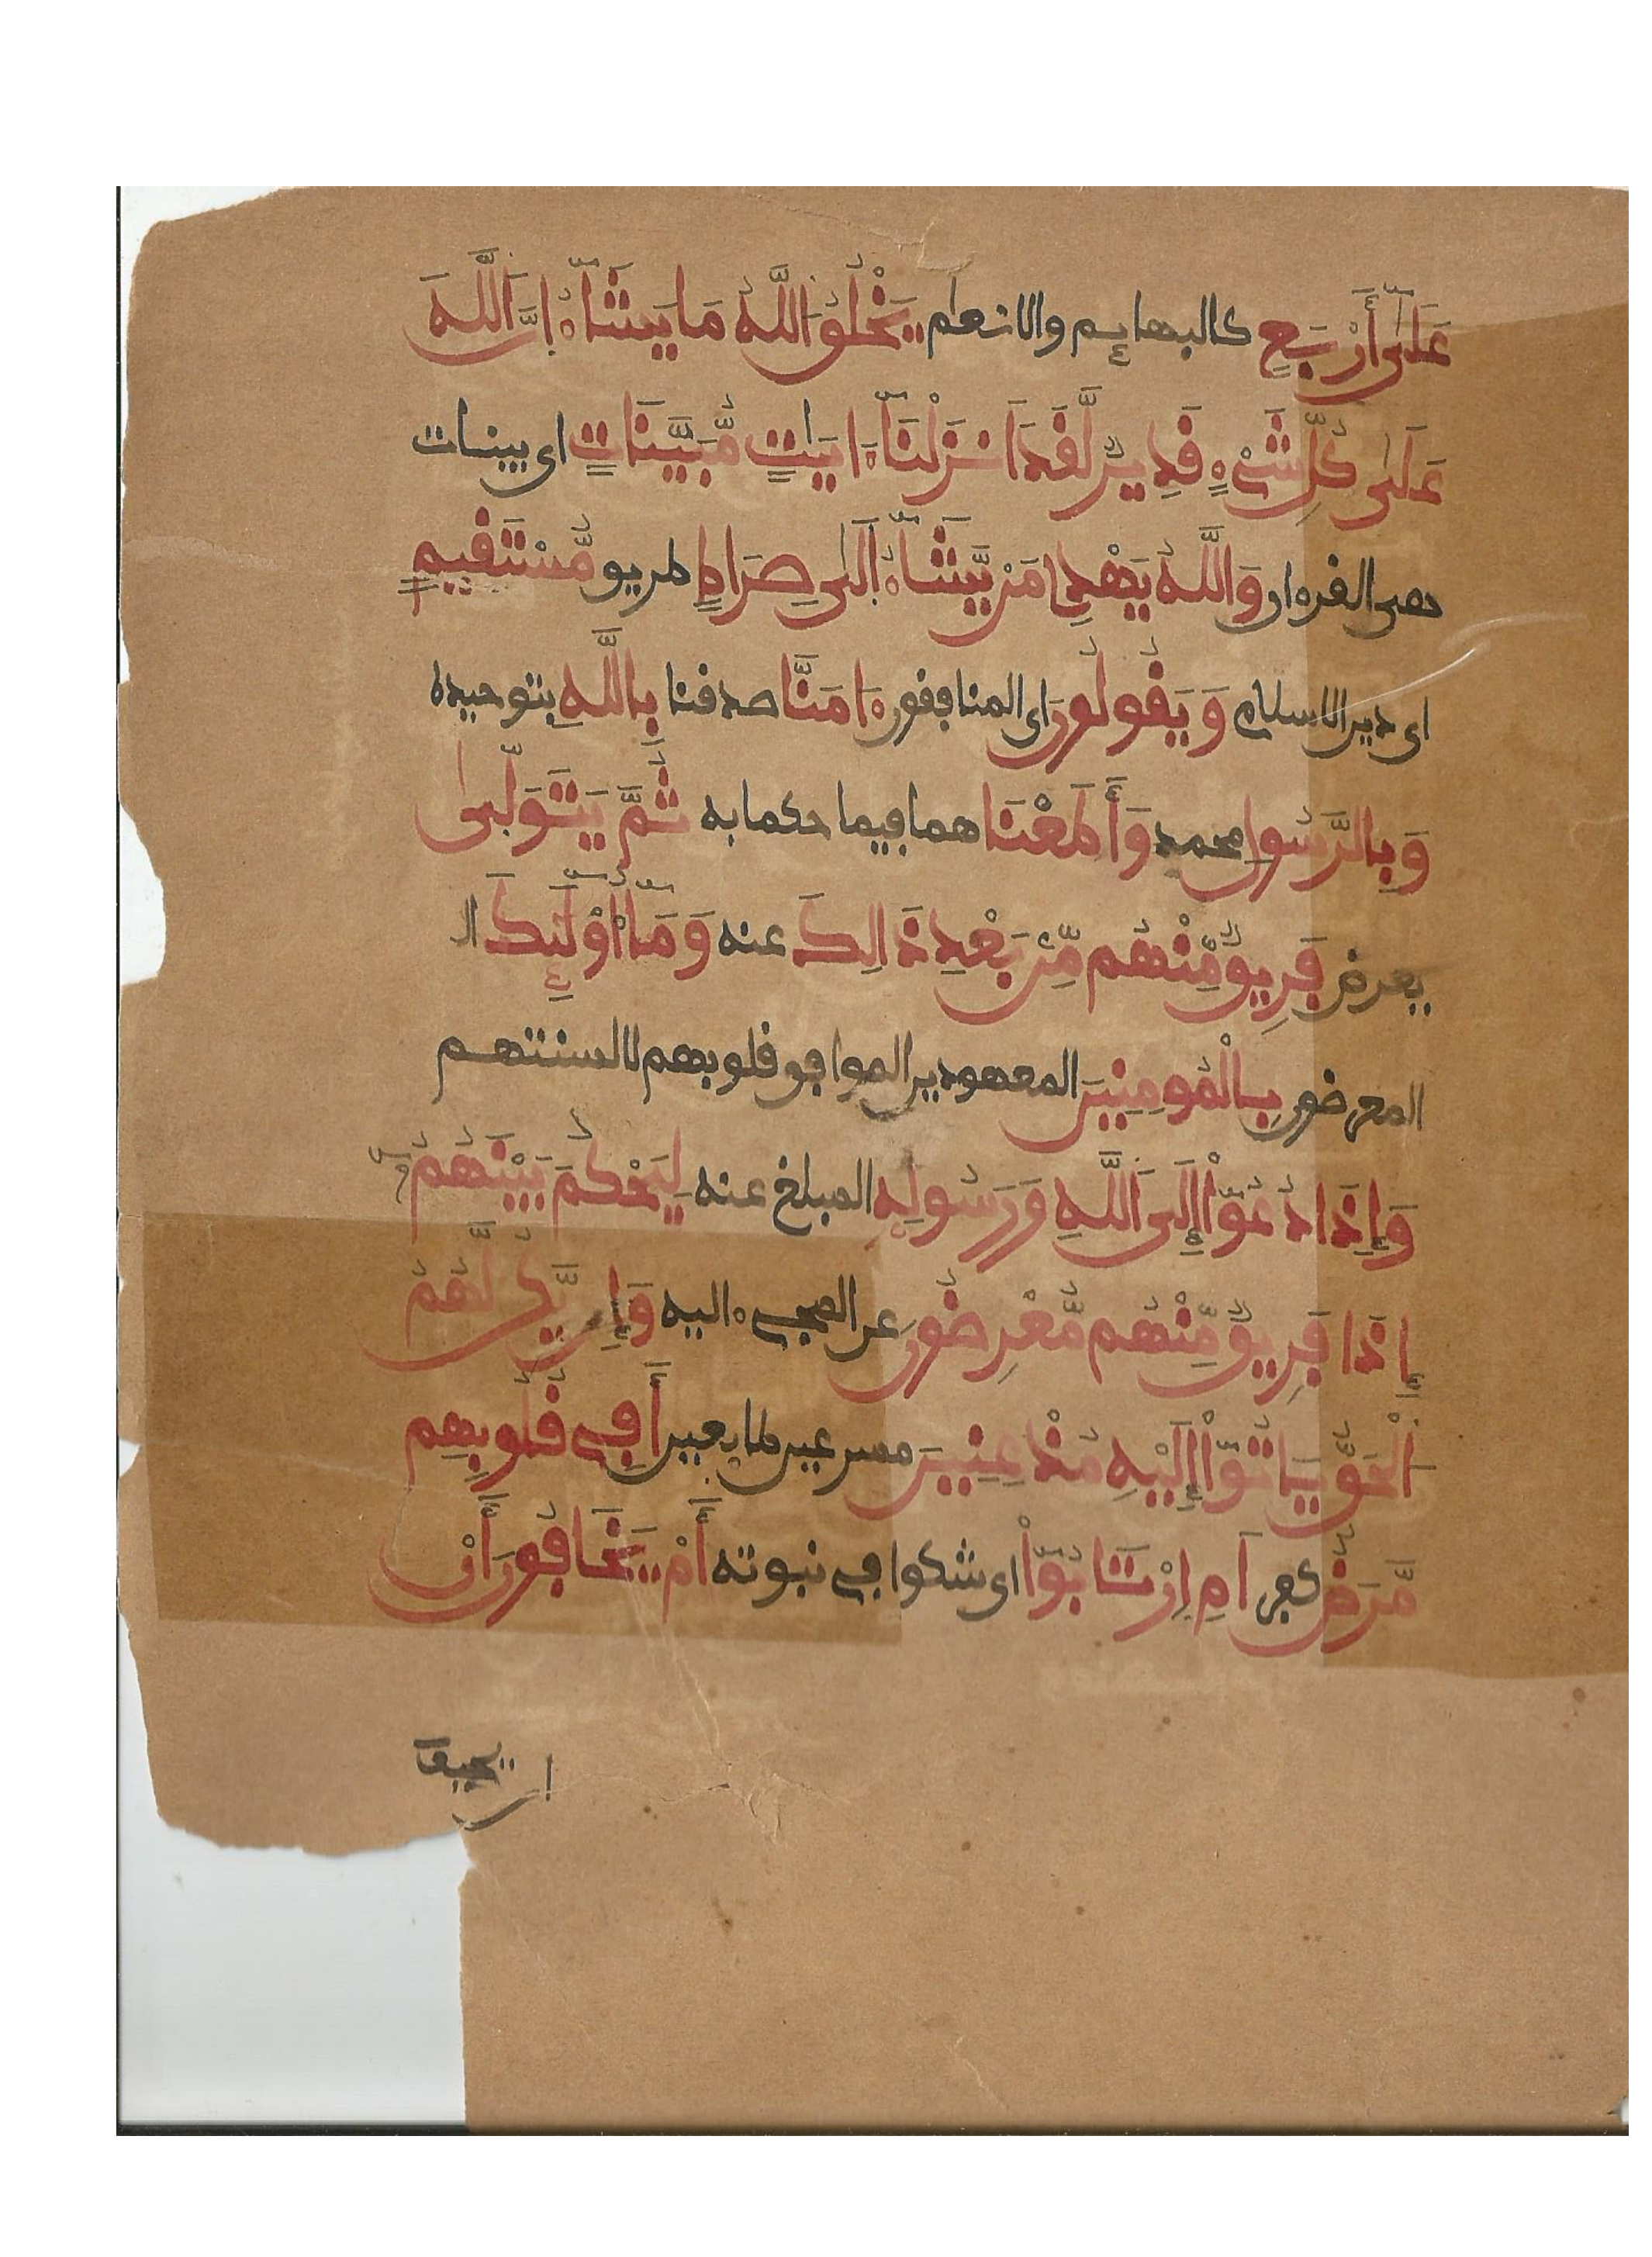 عَلَىٰ أَرْبَعٍ كالبهايم والانعام يَخْلُقُ اللَّهُ مَا يَشَآءُ اِنَّ اللَّهَ
عَلَىٰ كُلِّ شَيْءٍ قَدِيرٌ لَّقَدَ اَنزَلْنَآ ءَايَٰتٍ مُّبَيَّنَاتٍ اى بينات
هى القرءان وَاللَّهُ يَهْدِى مَنْ يَّشَآءُ اِلَىٰ صِرَاطٍ طريق مُّسْتَقِيمٍ
اى دين الاسلام وَيَقُولُونَ اى المنافقون ءَامَنَّا صدقنا بِاللَّهِ بتوحيده
وَبِالرَّسُولِ محمد وَأَطَعْنَا هما فيما حكما به ثُمَّ يَتَوَلَّىٰ
يعرض فَرِيقٌ مِّنْهُم مِّنۢ بَعْدِ ذَالِكَ عنه وَمَآ أُوْلَٰٓئِكَ ال
المعرضون بِالْمُومِنِينَ المعهودين الموافق قلوبهم لالسنتهم
وَإِذَا دُعُوٓاْ إِلَى اللَّهِ وَرَسُولِهِ المبلغ عنه لِيَحْكُمَ بَيْنَهُمُ
إِذَا فَرِيقٌ مِّنْهُم مُّعْرِضُونَ عن المجىء اليه وَإِنْ يَّكُن لَّهُمُ
الْحَقُّ يَاتُوٓاْ إِلَيْهِ مُذْعِنِينَ مسرعين طايعين أَفِى قُلُوبِهِم
مَّرَضٌ كفر اَمِ اِرْتَابُوٓاْ اى شكوا فى نبوته أَمْ يَخَافُونَ أَنْ
ان يحيف